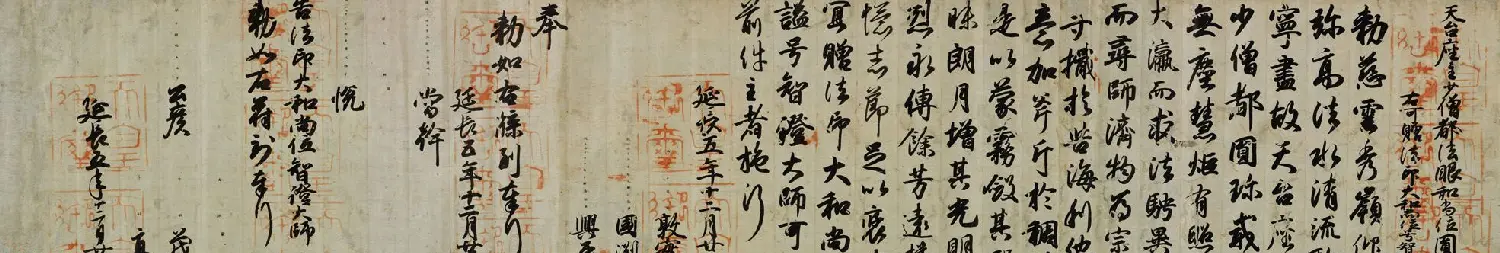 天台座主少僧都法眼和尚位圓
右可贈法印大和尚号智
勅慈雲秀嶺仰
弥高法水清流
寧盡故天台座
少僧都圓珎戒
無塵慧炬有照
大瀛而求法騁異
而尋師濟物為宗
寸攝於苦海利他
意加斧斤於稠
是以蒙霧斂其
昧朗月增其光明
烈永傳餘芳遠
憶志節足以褒
冥贈法印大和尚
諡号智證大師可
前件主者施行
延長五年十二月廿
敦
國
興
奉
勅如右牒到奉行
延長五年十二月廿
當幹
悦
告法印大和尚位智證大師
勅如右符到奉行
茂
公葛
延長五年十二月廿